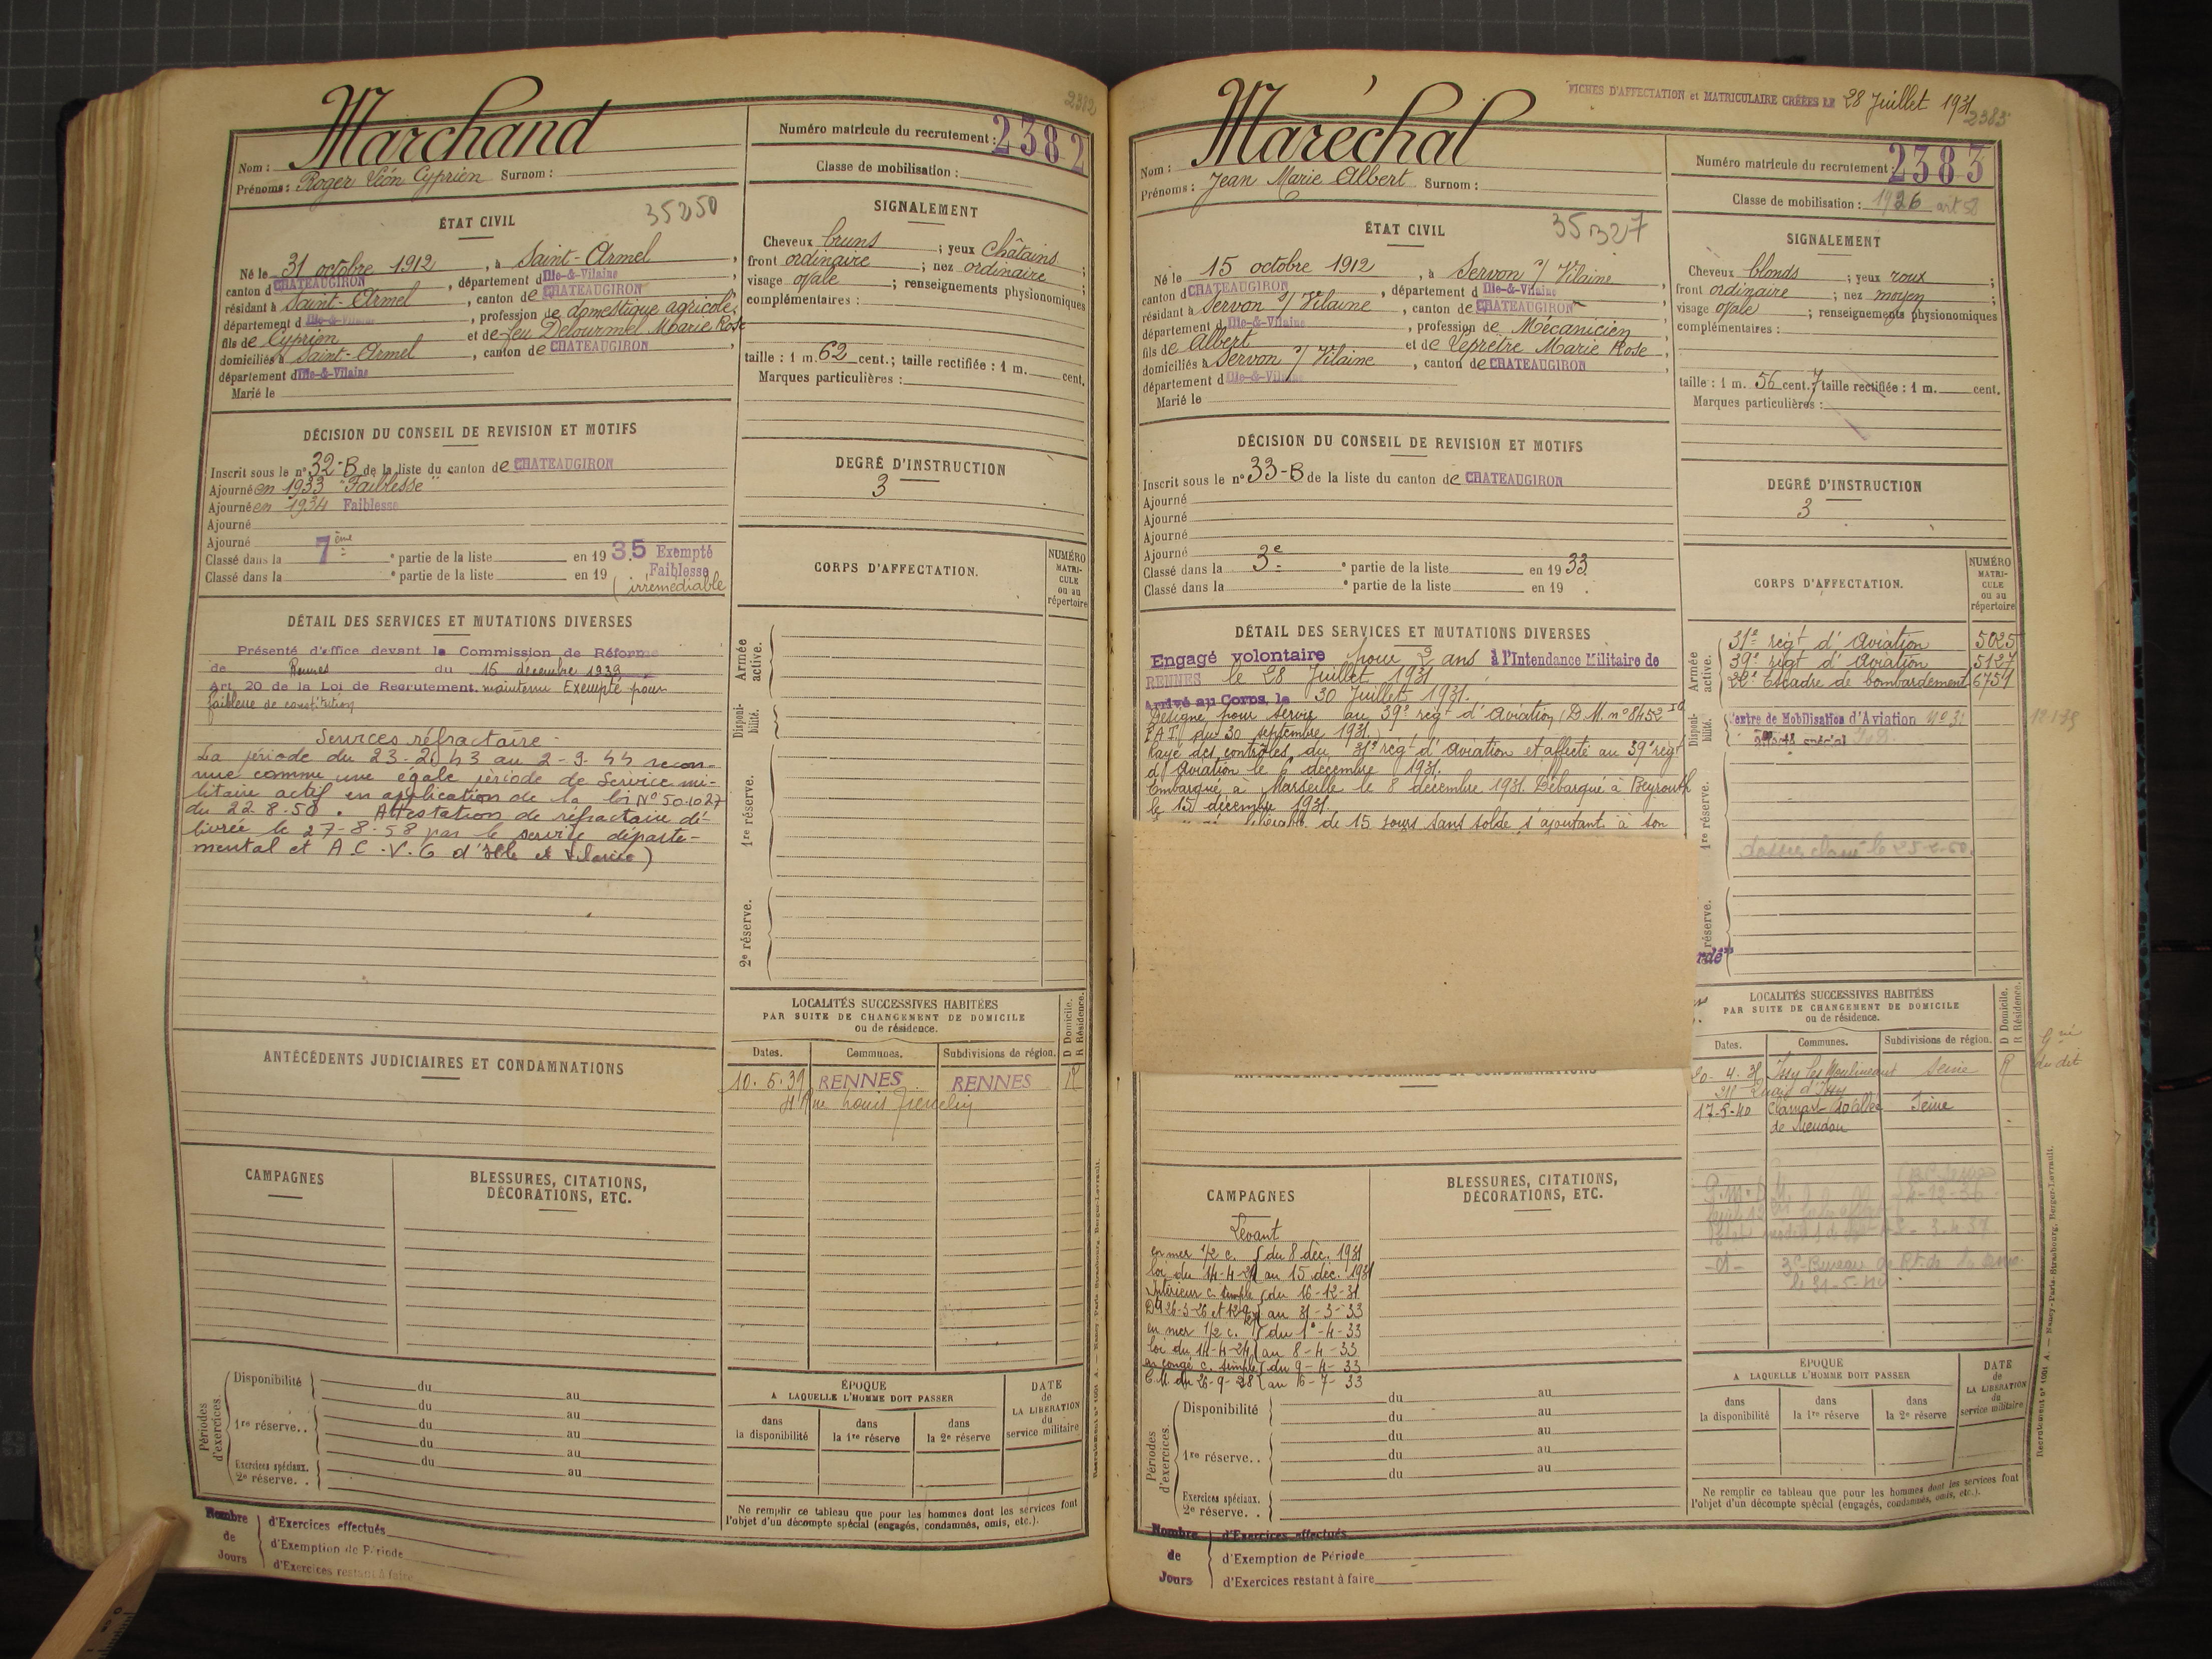 2382
Marchand
Nom :
Prénoms : Roger Léon Cyprien Surnom :
Numéro matricule du recrutement : 2382
Classe de mobilisation :
ÉTAT CIVIL
35250
Né le 31 octobre 1912, à Saint-Armel,
canton d CHATEAUGIRON, département d Ille-&-Vilaine,
résidant à Saint-Armel, canton de CHATEAUGIRON
département d Ille-&-Vilaine, profession de domestique agricole,
fils de Cyprien et de feu Delourmel Marie Rose
domiciliés à Saint-Armel, canton de CHATEAUGIRON,
département d Ille-&-Vilaine
Marié le
SIGNALEMENT
Cheveux bruns ; yeux châtains ;
front ordinaire ; nez ordinaire ;
visage ovale ; renseignements physionomiques
complémentaires :
taille : 1 m. 62 cent.; taille rectifiée : 1 m. cent.
Marques particulières :
DÉCISION DU CONSEIL DE REVISION ET MOTIFS
Inscrit sous le n° 32-B de la liste du canton de CHATEAUGIRON
Ajourné en 1933 "Faiblesse"
Ajourné en 1934 Faiblesse
Ajourné
Ajourné
Classé dans la 7ème e partie de la liste en 1935 Exempté
Classé dans la e partie de la liste en 19 Faiblesse
(irrémédiable
DEGRÉ D'INSTRUCTION
3
DÉTAIL DES SERVICES ET MUTATIONS DIVERSES
Présenté d'office devant la Commission de Réforme
de Rennes du 15 décembre 1939
Art. 20 de la Loi de Recrutement. maintenu Exempté pour
faiblesse de constitution
Services réfractaire
La période du 23-2-43 au 2-9-44 recon-
nue comme une égale période de Service mi-
litaire actif en application de la loi N° 50.1027
du 22.8.50. Attestation de réfractaire dé-
livrée le 27-8-58 par le service départe-
mental et A.C.V.G d'Ille et Vilaine)
CORPS D'AFFECTATION.
NUMÉRO
MATRI-
CULE
ou au
répertoire
Armée
active.
Disponi-
bilité.
1re réserve.
2e réserve.
ANTÉCÉDENTS JUDICIAIRES ET CONDAMNATIONS
LOCALITÉS SUCCESSIVES HABITÉES
PAR SUITE DE CHANGEMENT DE DOMICILE
ou de résidence.
D Domicile.
R Résidence.
Dates. Communes. Subdivisions de région.
10.5.39 RENNES RENNES R
CAMPAGNES
BLESSURES, CITATIONS,
DÉCORATIONS, ETC.
Périodes
d'exercices.
Disponibilité du au
du au
1re réserve.. du au
du au
Exercices spéciaux. du au
2e réserve. .
ÉPOQUE
A LAQUELLE L'HOMME DOIT PASSER
dans
la disponibilité
dans
la 1re réserve
dans
la 2e réserve
DATE
de
LA LIBÉRATION
du
service militaire
Ne remplir ce tableau que pour les hommes dont les services font
l'objet d'un décompte spécial (engagés, condamnés, omis, etc.).
Nombre
de
Jours
d'Exercices effectués
d'Exemption de Période
d'Exercices restant à faire
FICHES D'AFFECTATION et MATRICULAIRE CRÉÉES LE 28 Juillet 1931
2383
Maréchal
Nom :
Prénoms : Jean Marie Albert Surnom :
Numéro matricule du recrutement : 2383
Classe de mobilisation : 1926 art 58
ÉTAT CIVIL
35327
Né le 15 octobre 1912, à Servon s/ Vilaine,
canton d CHATEAUGIRON, département d Ille-&-Vilaine
résidant à Servon s/ Vilaine, canton de CHATEAUGIRON
département d Ille-&-Vilaine, profession de Mécanicien,
fils de Albert et de Leprêtre Marie Rose,
domiciliés à Servon s/ Vilaine, canton de CHATEAUGIRON
département d Ille-&-Vilaine
Marié le
SIGNALEMENT
Cheveux blonds ; yeux roux ;
front ordinaire ; nez moyen ;
visage ovale ; renseignements physionomiques
complémentaires :
taille : 1 m. 56 cent. 7 taille rectifiée : 1 m. cent.
Marques particulières :
DÉCISION DU CONSEIL DE REVISION ET MOTIFS
Inscrit sous le n° 33-B de la liste du canton de CHATEAUGIRON
Ajourné
Ajourné
Ajourné
Ajourné
Classé dans la 3e e partie de la liste en 1933
Classé dans la e partie de la liste en 19
DEGRÉ D'INSTRUCTION
3
DÉTAIL DES SERVICES ET MUTATIONS DIVERSES
Engagé volontaire pour 2 ans à l'Intendance Militaire de
RENNES le 28 Juillet 1931
Arrivé au Corps, le 30 Juillet 1931.
Désigné pour servir au 39e régt d'Aviation (D.M. n° 8452
E.A.I. du 30 septembre 1931.)
Rayé des contrôles du 31e régt d'aviation et affecté au 39e régt
d'Aviation le 6 décembre 1931.
Embarqué à Marseille le 8 décembre 1931. Débarqué à Beyrouth
le 15 décembre 1931.
de 15 jours sans solde s'ajoutant à son
CORPS D'AFFECTATION.
NUMÉRO
MATRI-
CULE
ou au
répertoire
Armée
active.
31e régt d'Aviation 5025
39e régt d'Aviation 5127
22e Escadre de bombardement 6759
Disponi-
bilité.
Centre de Mobilisation d'Aviation N° 31
Affecté spécial
1re réserve.
dossier classé le 25-2-60.
réserve.
LOCALITÉS SUCCESSIVES HABITÉES
PAR SUITE DE CHANGEMENT DE DOMICILE
ou de résidence.
D Domicile.
R Résidence.
Dates. Communes. Subdivisions de région.
20-4-38 Issy les Moulineaux Seine R
Quai d'Issy
17-5-40 Clamart Seine
de Meudon
3e Bureau
CAMPAGNES
BLESSURES, CITATIONS,
DÉCORATIONS, ETC.
Levant
en mer 1/2 c. du 8 déc. 1931
loi du 14-4-24 au 15 déc. 1931
Intérieur c. simple du 16-12-31
au 31-3-33
en mer 1/2 c. du 1°-4-33
loi du 14-4-24 au 8-4-33
en congé c. simple du 9-4-33
C.M. du 26-9-28 au 16-7-33
Périodes
d'exercices.
Disponibilité du au
du au
1re réserve.. du au
du au
du au
Exercices spéciaux.
2e réserve. .
ÉPOQUE
A LAQUELLE L'HOMME DOIT PASSER
dans
la disponibilité
dans
la 1re réserve
dans
la 2e réserve
DATE
de
LA LIBÉRATION
du
service militaire
Ne remplir ce tableau que pour les hommes dont les services font
l'objet d'un décompte spécial (engagés, condamnés, omis, etc.).
Nombre
de
Jours
d'Exercices effectués
d'Exemption de Période
d'Exercices restant à faire